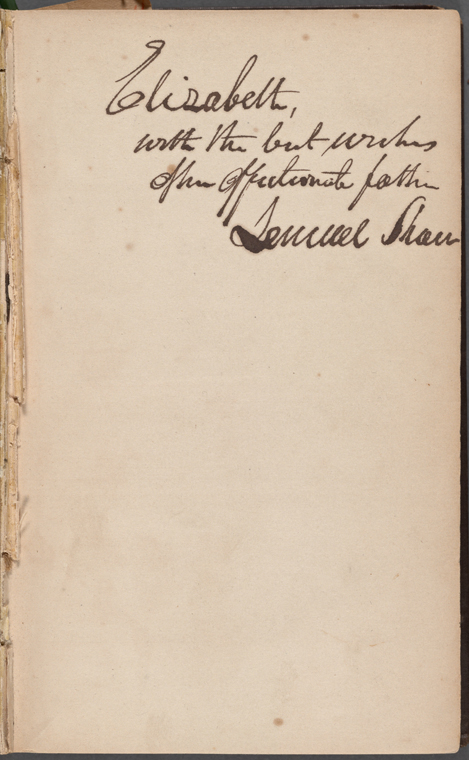 Elizabeth,
with the best wishes
of her affectionate father
Lemuel Shaw